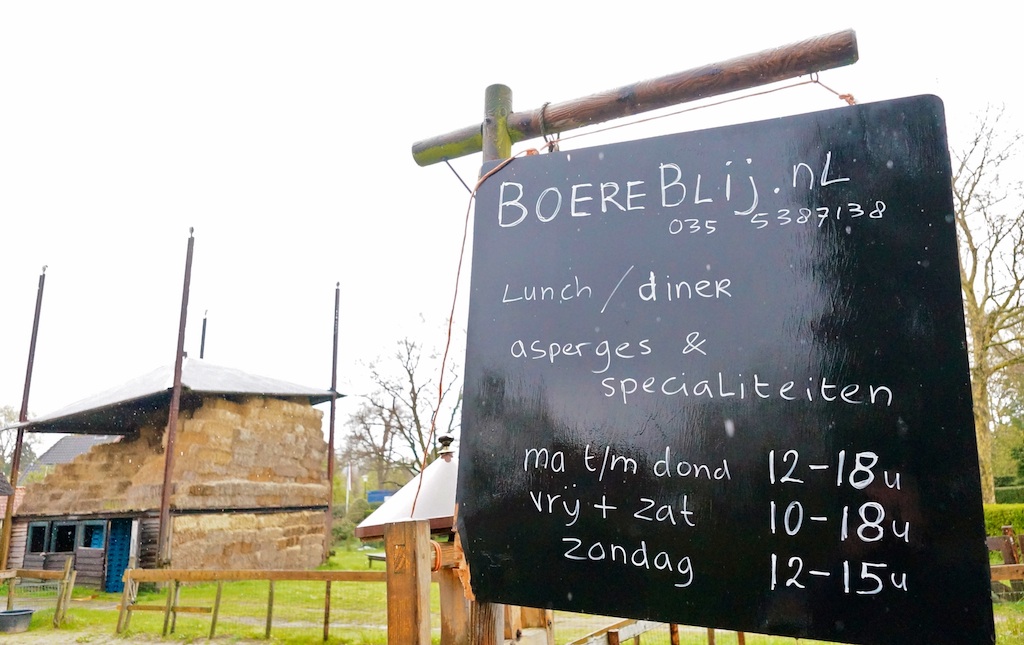 BOEREBLij.nL
035 5387138
Lunch / diner
asperges &
speciaLiteiten
ma t/m dond 12-18u
vrij + zat 10-18u
zondag 12-15u